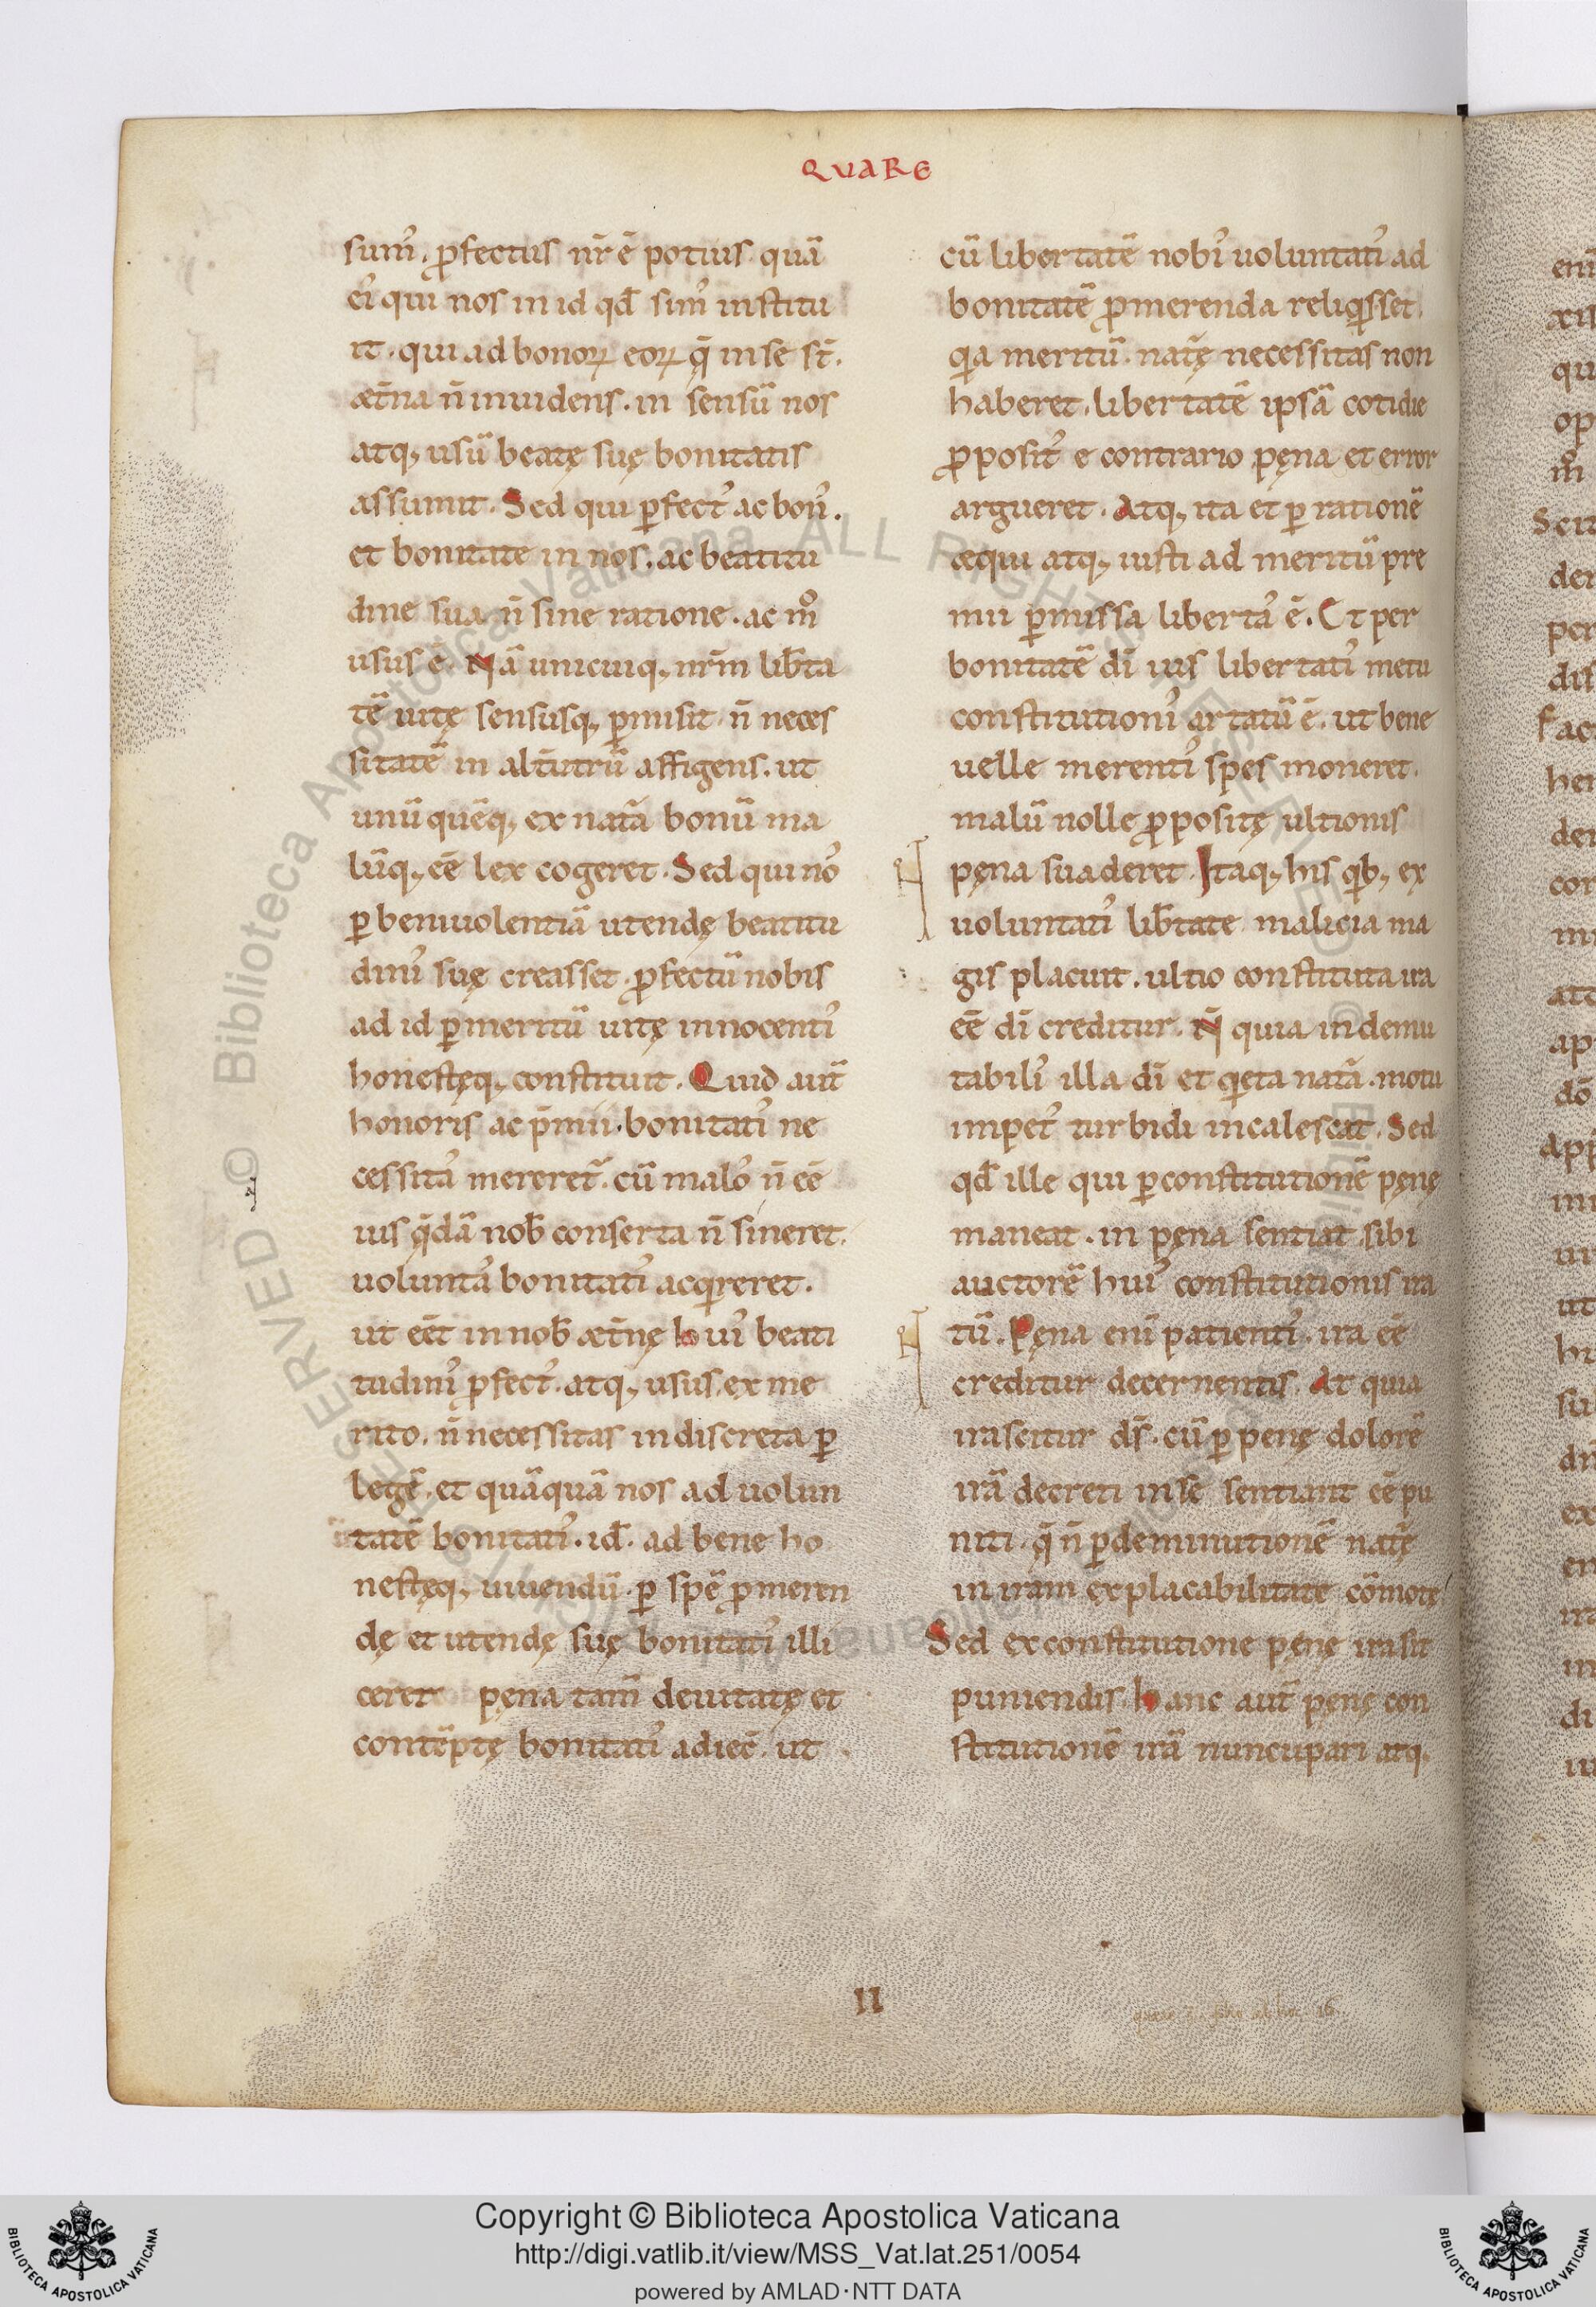 QVARE
sum᾽. ꝓfectus nr̄ ē potius quā
ei᾽ qui nos in id qđ sim᾽ institu
it. qui ad bonoꝝ eoꝝ q̄ in se st̄.
æt̄na n̄ inuidens. in sensū nos
atq; usū beatę suę bonitatis
assumit. Sed qui ꝑfect᾽ ac bon᾽.
et bonitate in nos. ac beatitu
dine sua n̄ sine ratione. ac m̊
usus ē. Nā unicuiq; nrm̄ lib̄ta
tē uitę sensusq; ꝑmisit. n̄ neces
sitatē in alt̄utrū affigens. ut
unū quēq; ex natā bonū ma
lūq; eē lex cogeret. Sed qui no᾽
ꝑ beniuolentiā utendę beatitu
dini᾽ suę creasset. ꝓfectū nobis
ad id ꝑ meritū uitę innocenti᾽
honestęq; constituit. Quid aut̄
honoris ac p̄mii. bonitati᾽ ne
cessita᾽ mereret᷑. cū malo᾽ n̄ eē
uis q̄dā nob̄ conserta n̄ sineret.
uolunta᾽ bonitati᾽ acqreret.
ut eēt in nob̄ æt̄nę hui᾽ beati
tudini᾽ ꝓfect᾽. atq; usus. ex me
rito. n̄ necessitas indiscreta ꝑ
legē. et quāquā nos ad uolun
tatē bonitati᾽. id̄. ad bene ho
nestęq; uiuendū. ꝑ spē ꝓmeren
dę et utendę suę bonitati᾽ illi
ceret pęna tam̄ deuitatę et
contēptę bonitati᾽ adiec̄. ut
cū libertatē nobi᾽ uoluntati᾽ ad
bonitatē ꝓmerenda reliqsset.
qa meritū. natę̄ necessitas non
haberet. libertatē ipsā cotidie
ꝓposit᾽ e contrario pęna et error
argueret. Atq; ita et ꝑ rationē
æqui atq; iusti ad meritū pre
mii ꝑmissa liberta᾽ ē. Et per
bonitatē dī ius libertati᾽ metu
constitutioni᾽ artatū ē. ut bene
uelle merenti᾽ spes moneret.
malū nolle ꝓpositę ultionis
pęna suaderet. Itaq; his qb; ex
uoluntati᾽ lib̄tate malicia ma
gis placuit. ultio constituta ira
eē dī creditur. N̄ quia indemu
tabili᾽ illa dī et qeta natā. motu
impet᾽ turbidi incalescat. Sed
qđ ille qui ꝑ constitutionē pęnę
maneat. in pęna sentiat sibi
auctorē hui᾽ constitutionis ira
tū. Pęna enī patienti᾽. ira eē
creditur decernentis. At quia
irascitur ds̄. cū ꝑ penę dolorē
irā decreti in se sentiant eē pu
niti. q̄ n̄ ꝑ deminutionē natę̄
in iram ex placabilitate cōmotę
Sed ex constitutione pęnę ira sit
puniendis. hanc aut̄ pęnę con
stitutionē irā nuncupari atq;
II
Copyright © Biblioteca Apostolica Vaticana
http://digi.vatlib.it/view/MSS_Vat.lat.251/0054
powered by AMLAD·NTT DATA